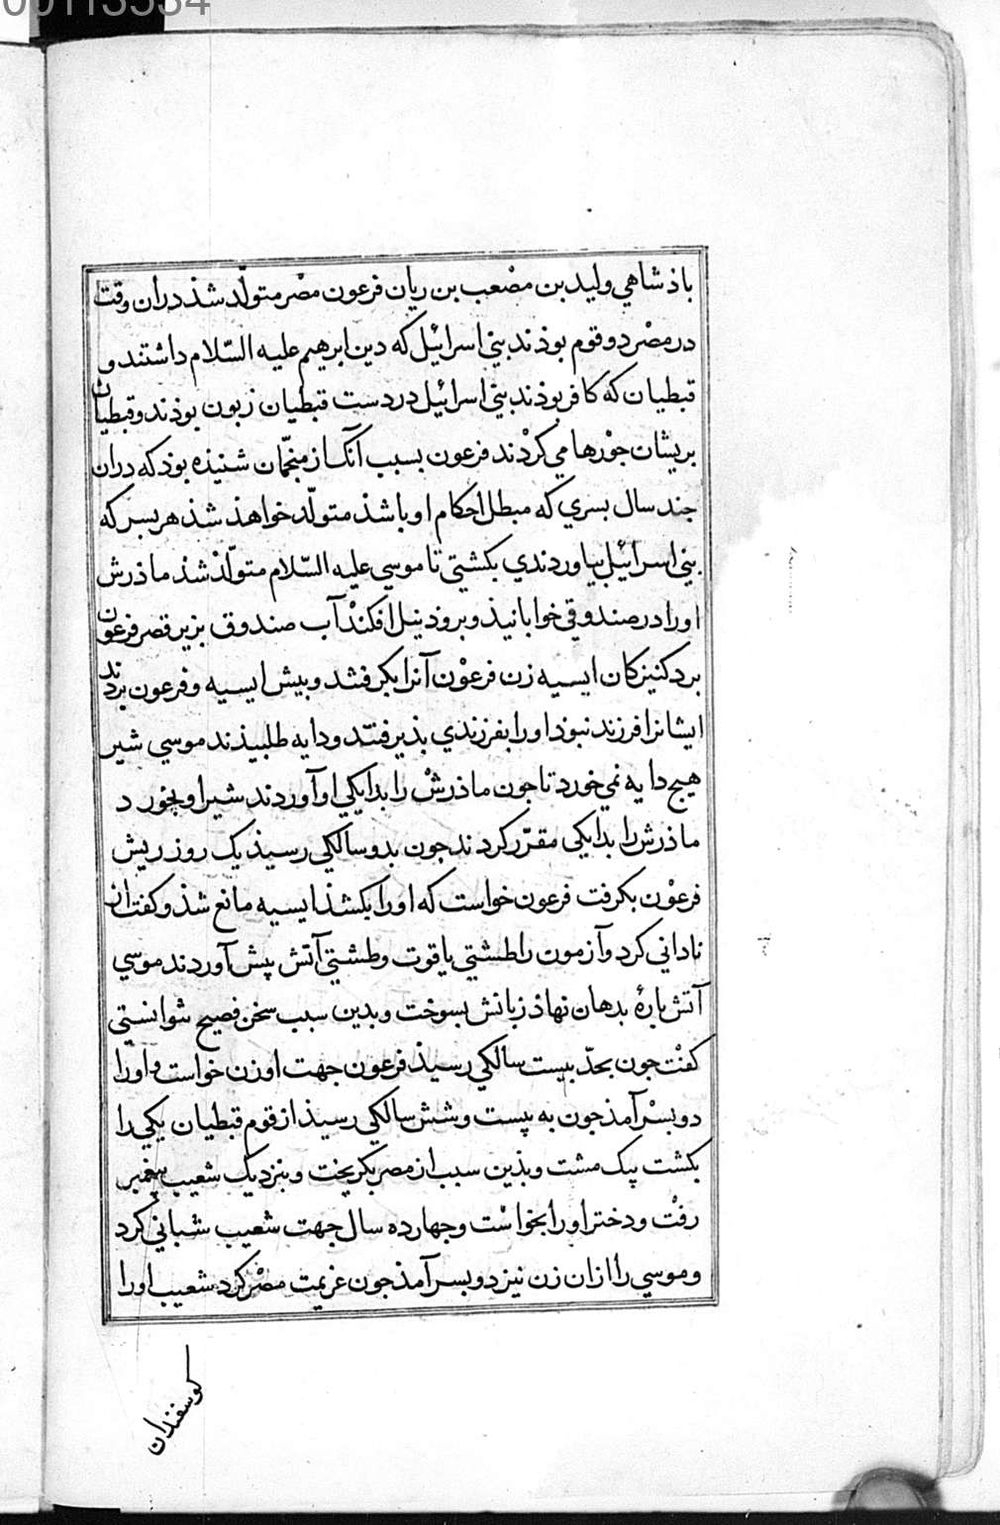 00113534
باذشاهي وليد بن مصْعب بن ريان فرعون مصْر متولّد شذ دران وقت
در مصْر دو قوم بوذند بني اسرائيْل كه دين ابرهيم عليه السّلام داشتند و
قبطيان كه كافر بوذند بني اسرائيْل در دست قبطيان زبون بوذند و قبطيان
بريشان جوْرها مي كردْند فرعون بسبب آنك از منجّمان شنيذه بوذ كه دران
جند سال بسري كه مبطل احكام او باشذ متولّد خواهذ شذ هر بسر كه
بني اسرائيْل بياوردندي بكشتي تا موسي عليه السّلام متولّذ شذ ماذرش
او را در صندوقي خوابانيذ و بروذ نيل افكندْ آب صندوق بزير قصر فرعون
برد كنيزكان ايسيه زن فرعوْن آنرا بكرفتند و بيش ايسيه و فرعون بردند
ايشانرا فرزند نبوذ او را بفرزندي بذيرفتند و دايه طلبيذند موسي شير
هيج دايه نمي خورد تا جون ماذرشْ را بدايكي او آوردند شير او بخورد
ماذرش را بدايكي مقرّر كردند جون بدو سالكي رسيذ يك روز ريش
فرعوْن بكرفت فرعون خواست كه او را بكشذ ايسيه مانع شذ و كفت از
ناداني كرد و آزمون را طشتي ياقوت و طشتي آتش پيش آوردند موسي
آتش بارهٔ بدهان نهاذ زبانش بسوخت و بدين سبب سخن فصيح نتوانستي
كفتْ جون بحدّ بيست سالكي رسيذ فرعون جهت او زن خواست و او را
دو بسْر آمذ جون به بيست و شش سالكي رسيذ از قوم قبطيان يكي را
بكشت بيك مشت و بذين سبب از مصر بكريخت و بنزديك شعيب پيغمبر
رفتْ و دختر او را بخواسْت و جهارده سال جهت شعيب شباني كرد
و موسي را از ان زن نيز دو بسر آمذ جون عزيمت مصْر كرد شعيب او را
كوسفندان